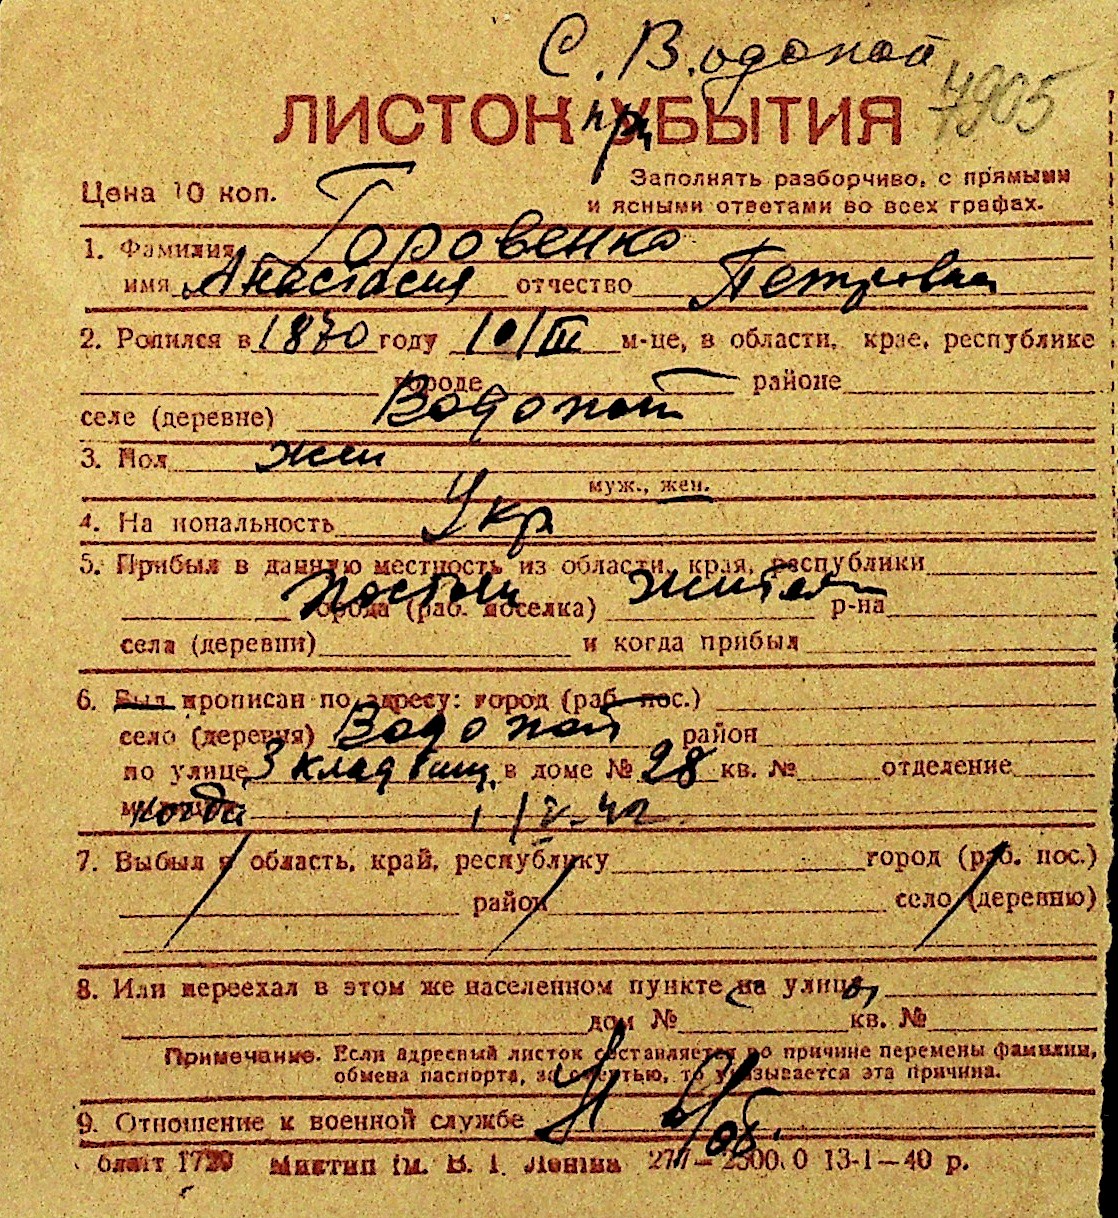 С. Водопой
ЛИСТОК при УБЫТИЯ 4905
Цена 10 коп. Заполнять разборчиво, с прямыми
и ясными ответами во всех графах.
1. Фамилия Горовенко
имя Анастасия отчество Петровна
2. Родился в 1870 году 10/III м-це, в области, крае, республике
городе районе
селе (деревне) Водопой
3. Пол жен
муж., жен.
4. На иональность Укр
5. Прибыл в данную местность из области, края, республики
города (раб. поселка) р-на
Постоян жител
села (деревни) и когда прибыл
6. Был прописан по адресу: город (раб. пос.)
село (деревня) Водопой район
по улице 3 кладбищ в доме № 28 кв. № отделение
когда 1/V-42
7. Выбыл в область, край, республику город (раб. пос.)
район село (деревню)
8. Или переехал в этом же населенном пункте на улицу
дом № кв. №
Примечание. Если адресный листок составляется по причине перемены фамилии,
обмена паспорта, за смертью, то указывается эта причина.
9. Отношение к военной службе
1720 Миктип ім. В. І. Леніна 277—2500.0 13-1—40 р.